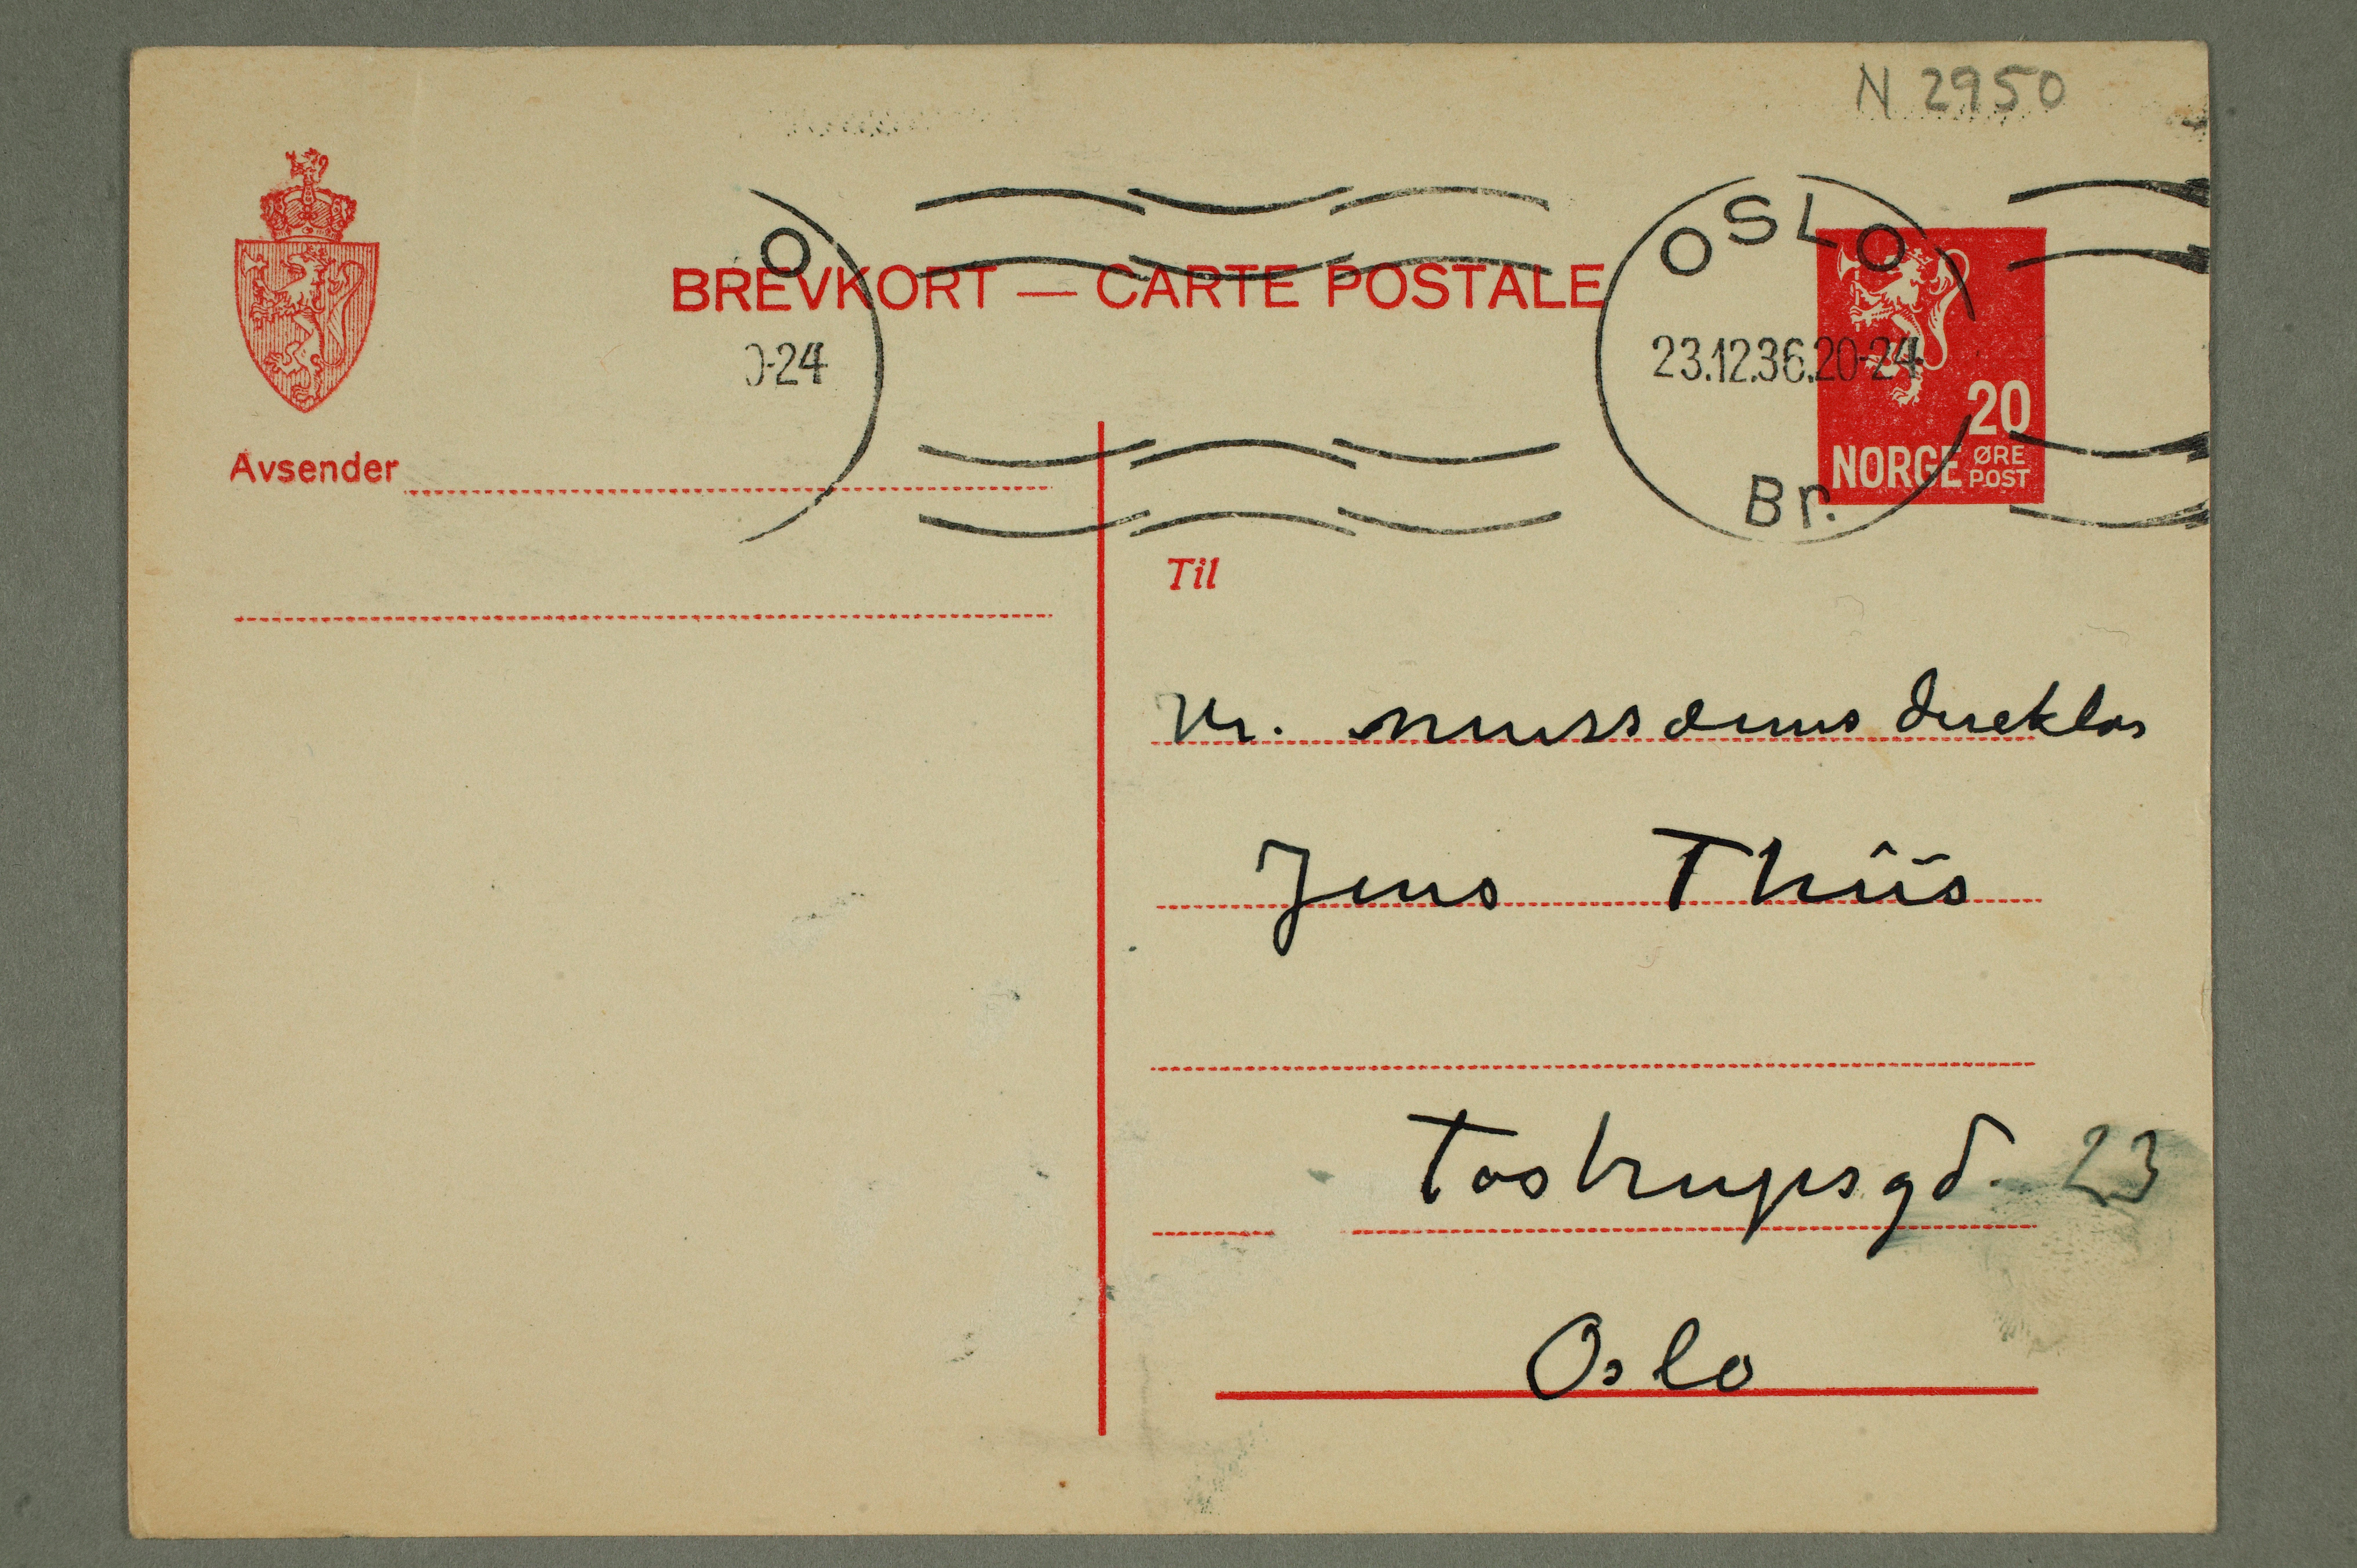 N 2950
O
OSLO
BREVKORT — CARTE POSTALE
0-24
23.12.36.20-24
20
NORGE ØRE POST
Br.
Avsender
Til
Hr. mussæums direktør
Jens Thiis
Tostrupsgd. 23
Oslo